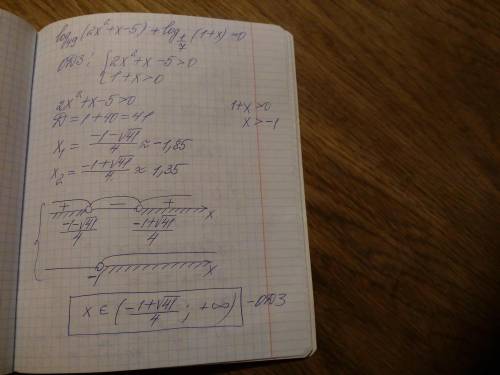 log₄₉(2x²+x-5)+log_{1/7}(1+x)=0
ОДЗ: { 2x²+x-5>0
1+x>0
2x²+x-5>0
1+x>0
D=1+40=41
x>-1
x₁ = (-1-√41)/4 ≈ -1,85
x₂ = (-1+√41)/4 ≈ 1,35
+ − + x
(-1-√41)/4 (-1+√41)/4
-1 x
x ∈ ( (-1+√41)/4 ; +∞ ) -ОДЗ